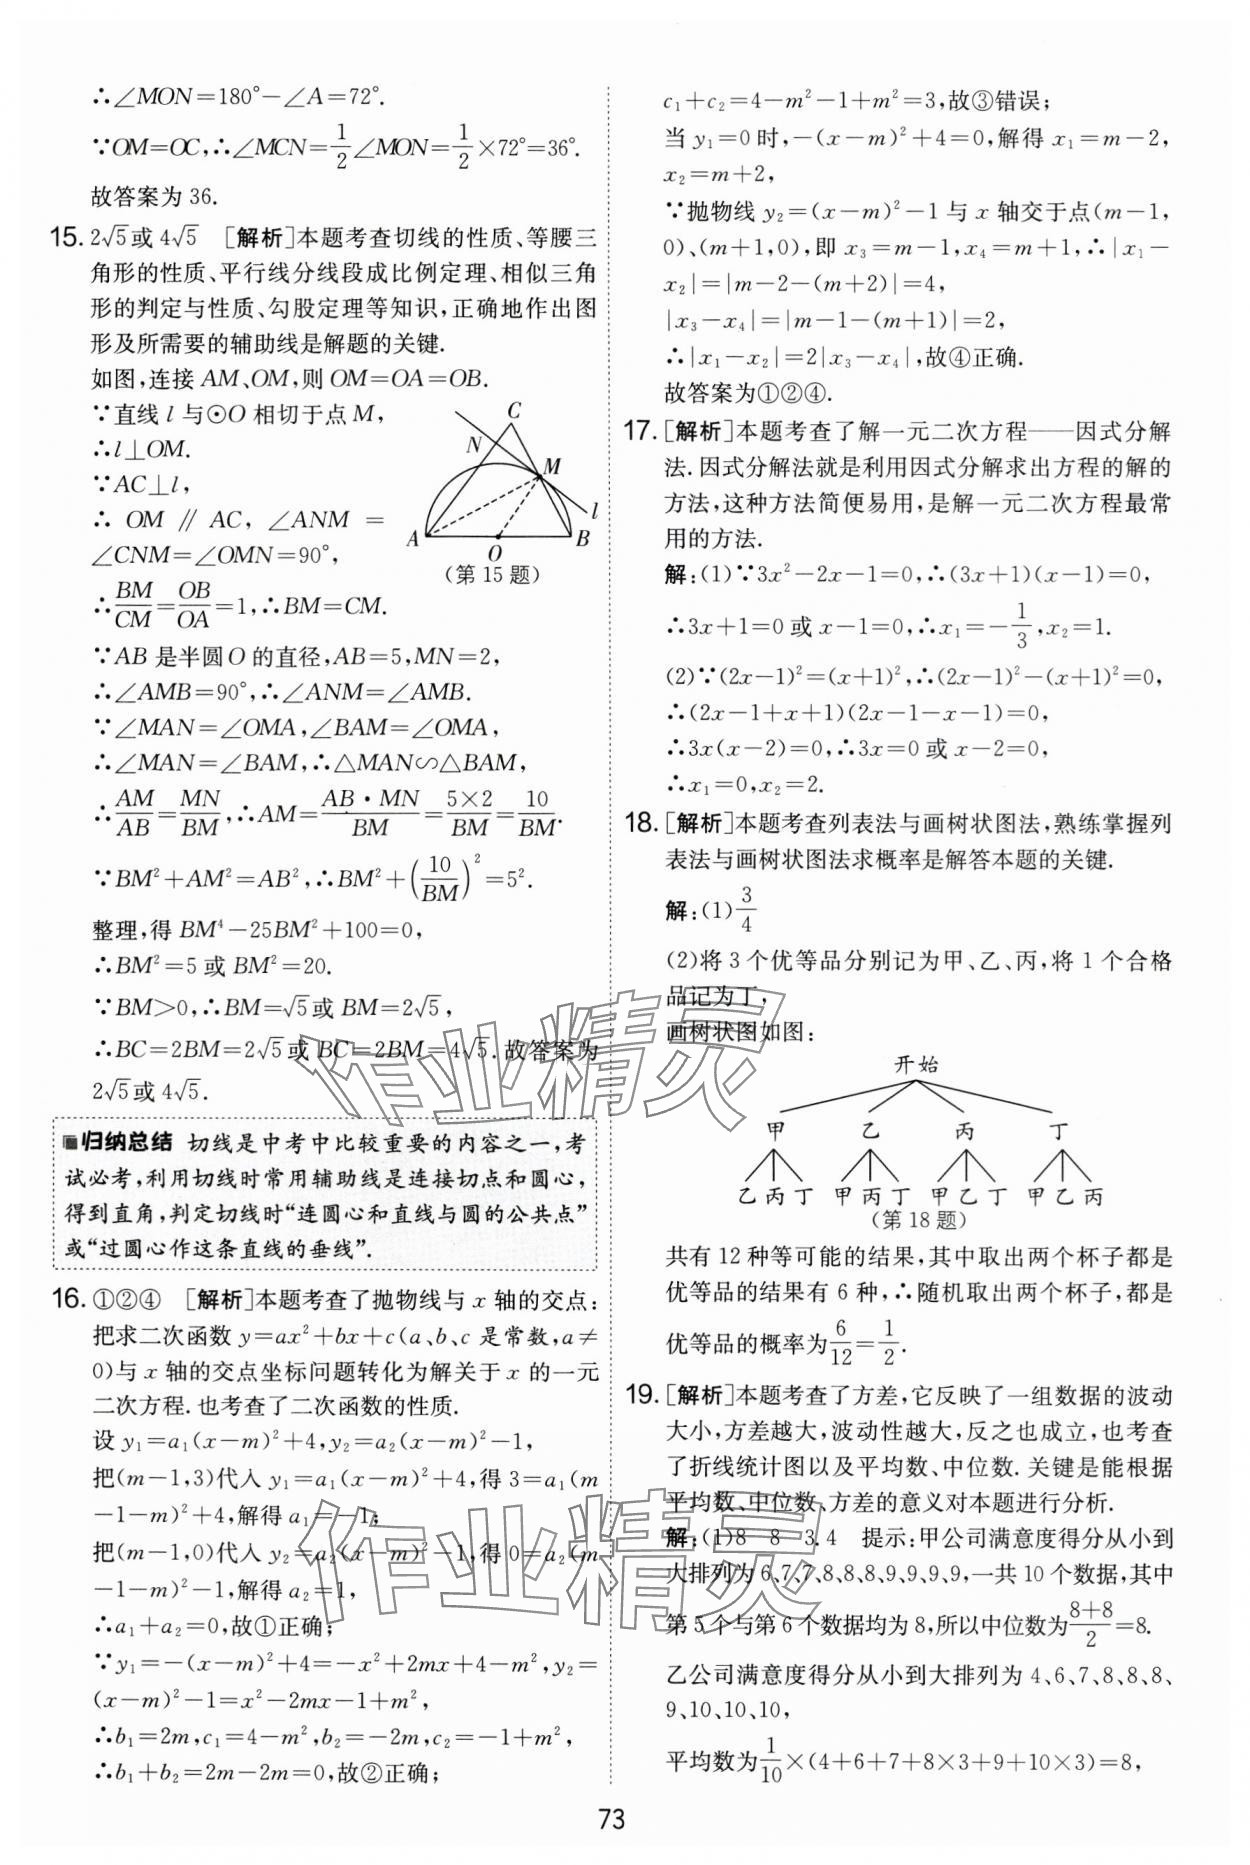 ∴∠MON=180°-∠A=72°.
∵OM=OC,∴∠MCN=1/2∠MON=1/2×72°=36°.
故答案为 36.
15. 2√5或 4√5 [解析]本题考查切线的性质、等腰三
角形的性质、平行线分线段成比例定理、相似三角
形的判定与性质、勾股定理等知识,正确地作出图
形及所需要的辅助线是解题的关键.
如图,连接 AM、OM,则 OM=OA=OB.
∵直线 l 与⊙O 相切于点 M,
∴l⊥OM.
∵AC⊥l,
∴ OM ∥ AC, ∠ANM =
∠CNM=∠OMN=90°,
∴BM/CM=OB/OA=1,∴BM=CM.
C
N
M
l
A
O
B
(第 15 题)
∵AB 是半圆 O 的直径,AB=5,MN=2,
∴∠AMB=90°,∴∠ANM=∠AMB.
∵∠MAN=∠OMA,∠BAM=∠OMA,
∴∠MAN=∠BAM,∴△MAN∽△BAM,
∴AM/AB=MN/BM,∴AM=AB·MN/BM=5×2/BM=10/BM.
∵BM²+AM²=AB²,∴BM²+(10/BM)²=5².
整理,得 BM⁴-25BM²+100=0,
∴BM²=5 或 BM²=20.
∵BM>0,∴BM=√5或 BM=2√5,
∴BC=2BM=2√5或 BC=2BM=4√5. 故答案为
2√5或 4√5.
归纳总结 切线是中考中比较重要的内容之一,考
试必考,利用切线时常用辅助线是连接切点和圆心,
得到直角,判定切线时“连圆心和直线与圆的公共点”
或“过圆心作这条直线的垂线”.
16. ①②④ [解析]本题考查了抛物线与 x 轴的交点:
把求二次函数 y=ax²+bx+c(a、b、c 是常数,a≠
0)与 x 轴的交点坐标问题转化为解关于 x 的一元
二次方程. 也考查了二次函数的性质.
设 y₁=a₁(x-m)²+4,y₂=a₂(x-m)²-1,
把(m-1,3)代入 y₁=a₁(x-m)²+4,得 3=a₁(m
-1-m)²+4,解得 a₁=-1;
把(m-1,0)代入 y₂=a₂(x-m)²-1,得 0=a₂(m
-1-m)²-1,解得 a₂=1,
∴a₁+a₂=0,故①正确;
∵y₁=-(x-m)²+4=-x²+2mx+4-m²,y₂=
(x-m)²-1=x²-2mx-1+m²,
∴b₁=2m,c₁=4-m²,b₂=-2m,c₂=-1+m²,
∴b₁+b₂=2m-2m=0,故②正确;
c₁+c₂=4-m²-1+m²=3,故③错误;
当 y₁=0 时,-(x-m)²+4=0,解得 x₁=m-2,
x₂=m+2,
∵抛物线 y₂=(x-m)²-1 与 x 轴交于点(m-1,
0)、(m+1,0),即 x₃=m-1,x₄=m+1,∴|x₁-
x₂|=|m-2-(m+2)|=4,
|x₃-x₄|=|m-1-(m+1)|=2,
∴|x₁-x₂|=2|x₃-x₄|,故④正确.
故答案为①②④.
17. [解析]本题考查了解一元二次方程——因式分解
法. 因式分解法就是利用因式分解求出方程的解的
方法,这种方法简便易用,是解一元二次方程最常
用的方法.
解:(1)∵3x²-2x-1=0,∴(3x+1)(x-1)=0,
∴3x+1=0 或 x-1=0,∴x₁=-1/3,x₂=1.
(2)∵(2x-1)²=(x+1)²,∴(2x-1)²-(x+1)²=0,
∴(2x-1+x+1)(2x-1-x-1)=0,
∴3x(x-2)=0,∴3x=0 或 x-2=0,
∴x₁=0,x₂=2.
18. [解析]本题考查列表法与画树状图法,熟练掌握列
表法与画树状图法求概率是解答本题的关键.
解:(1)3/4
(2)将 3 个优等品分别记为甲、乙、丙,将 1 个合格
品记为丁,
画树状图如图:
开始
甲 乙 丙 丁
乙 丙 丁 甲 丙 丁 甲 乙 丁 甲 乙 丙
(第 18 题)
共有 12 种等可能的结果,其中取出两个杯子都是
优等品的结果有 6 种,∴随机取出两个杯子,都是
优等品的概率为6/12=1/2.
19. [解析]本题考查了方差,它反映了一组数据的波动
大小,方差越大,波动性越大,反之也成立,也考查
了折线统计图以及平均数、中位数. 关键是能根据
平均数、中位数、方差的意义对本题进行分析.
解:(1)8 8 3.4 提示:甲公司满意度得分从小到
大排列为 6、7、7、8、8、8、9、9、9、9,一共 10 个数据,其中
第 5 个与第 6 个数据均为 8,所以中位数为8+8/2=8.
乙公司满意度得分从小到大排列为 4、6、7、8、8、8、
9、10、10、10,
平均数为1/10×(4+6+7+8×3+9+10×3)=8,
73
作业精灵
作业精灵